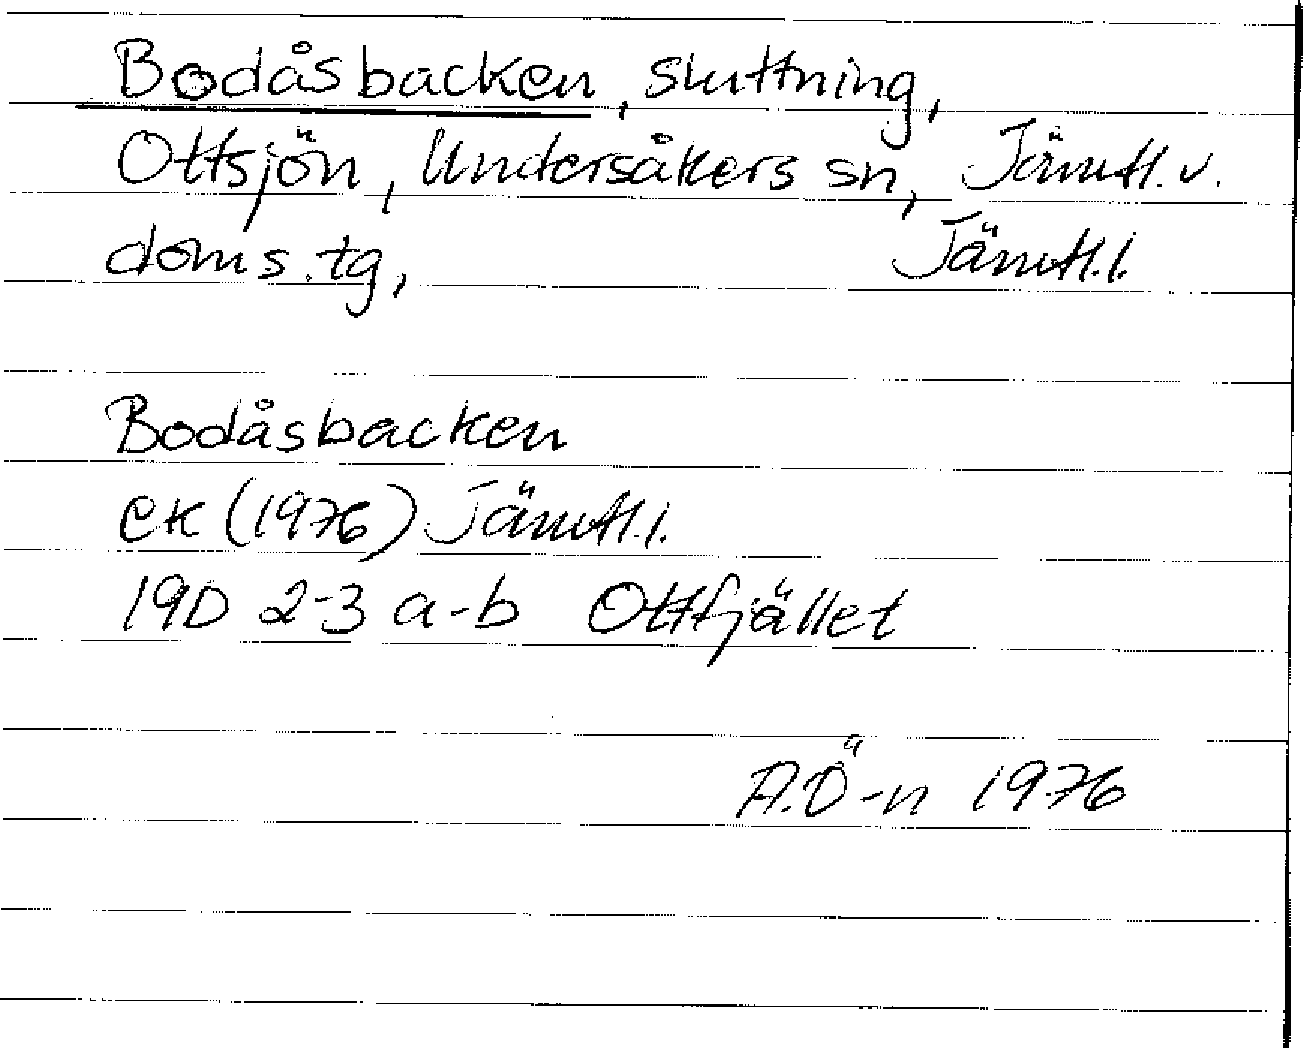 Bodåsbacken, sluttning,
Ottsjön, Undersåkers sn, Jämtl. v.
doms.tg, Jämtl.l.
Bodåsbacken
EK (1976) Jämtl.l.
19D 2-3 a-b Ottfjället
A.Ö-n 1976